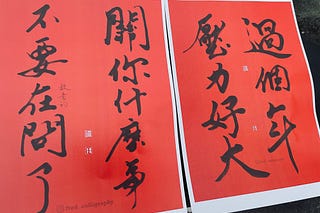 過個年
壓力好大
關你什麼事
不要在問了
故意的
calligraphy